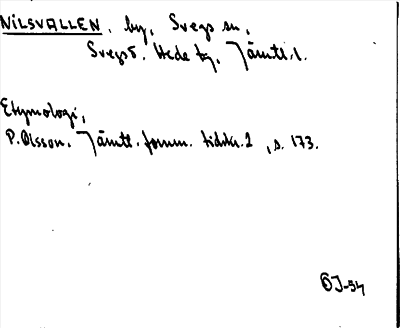 NILSVALLEN, by, Svegs sn,
Svegs d. Hede tg, Jämtl. l.
Etymologi,
P. Olsson. Jämtl. fornm. tidskr. 2, s. 173.
ÖJ-54